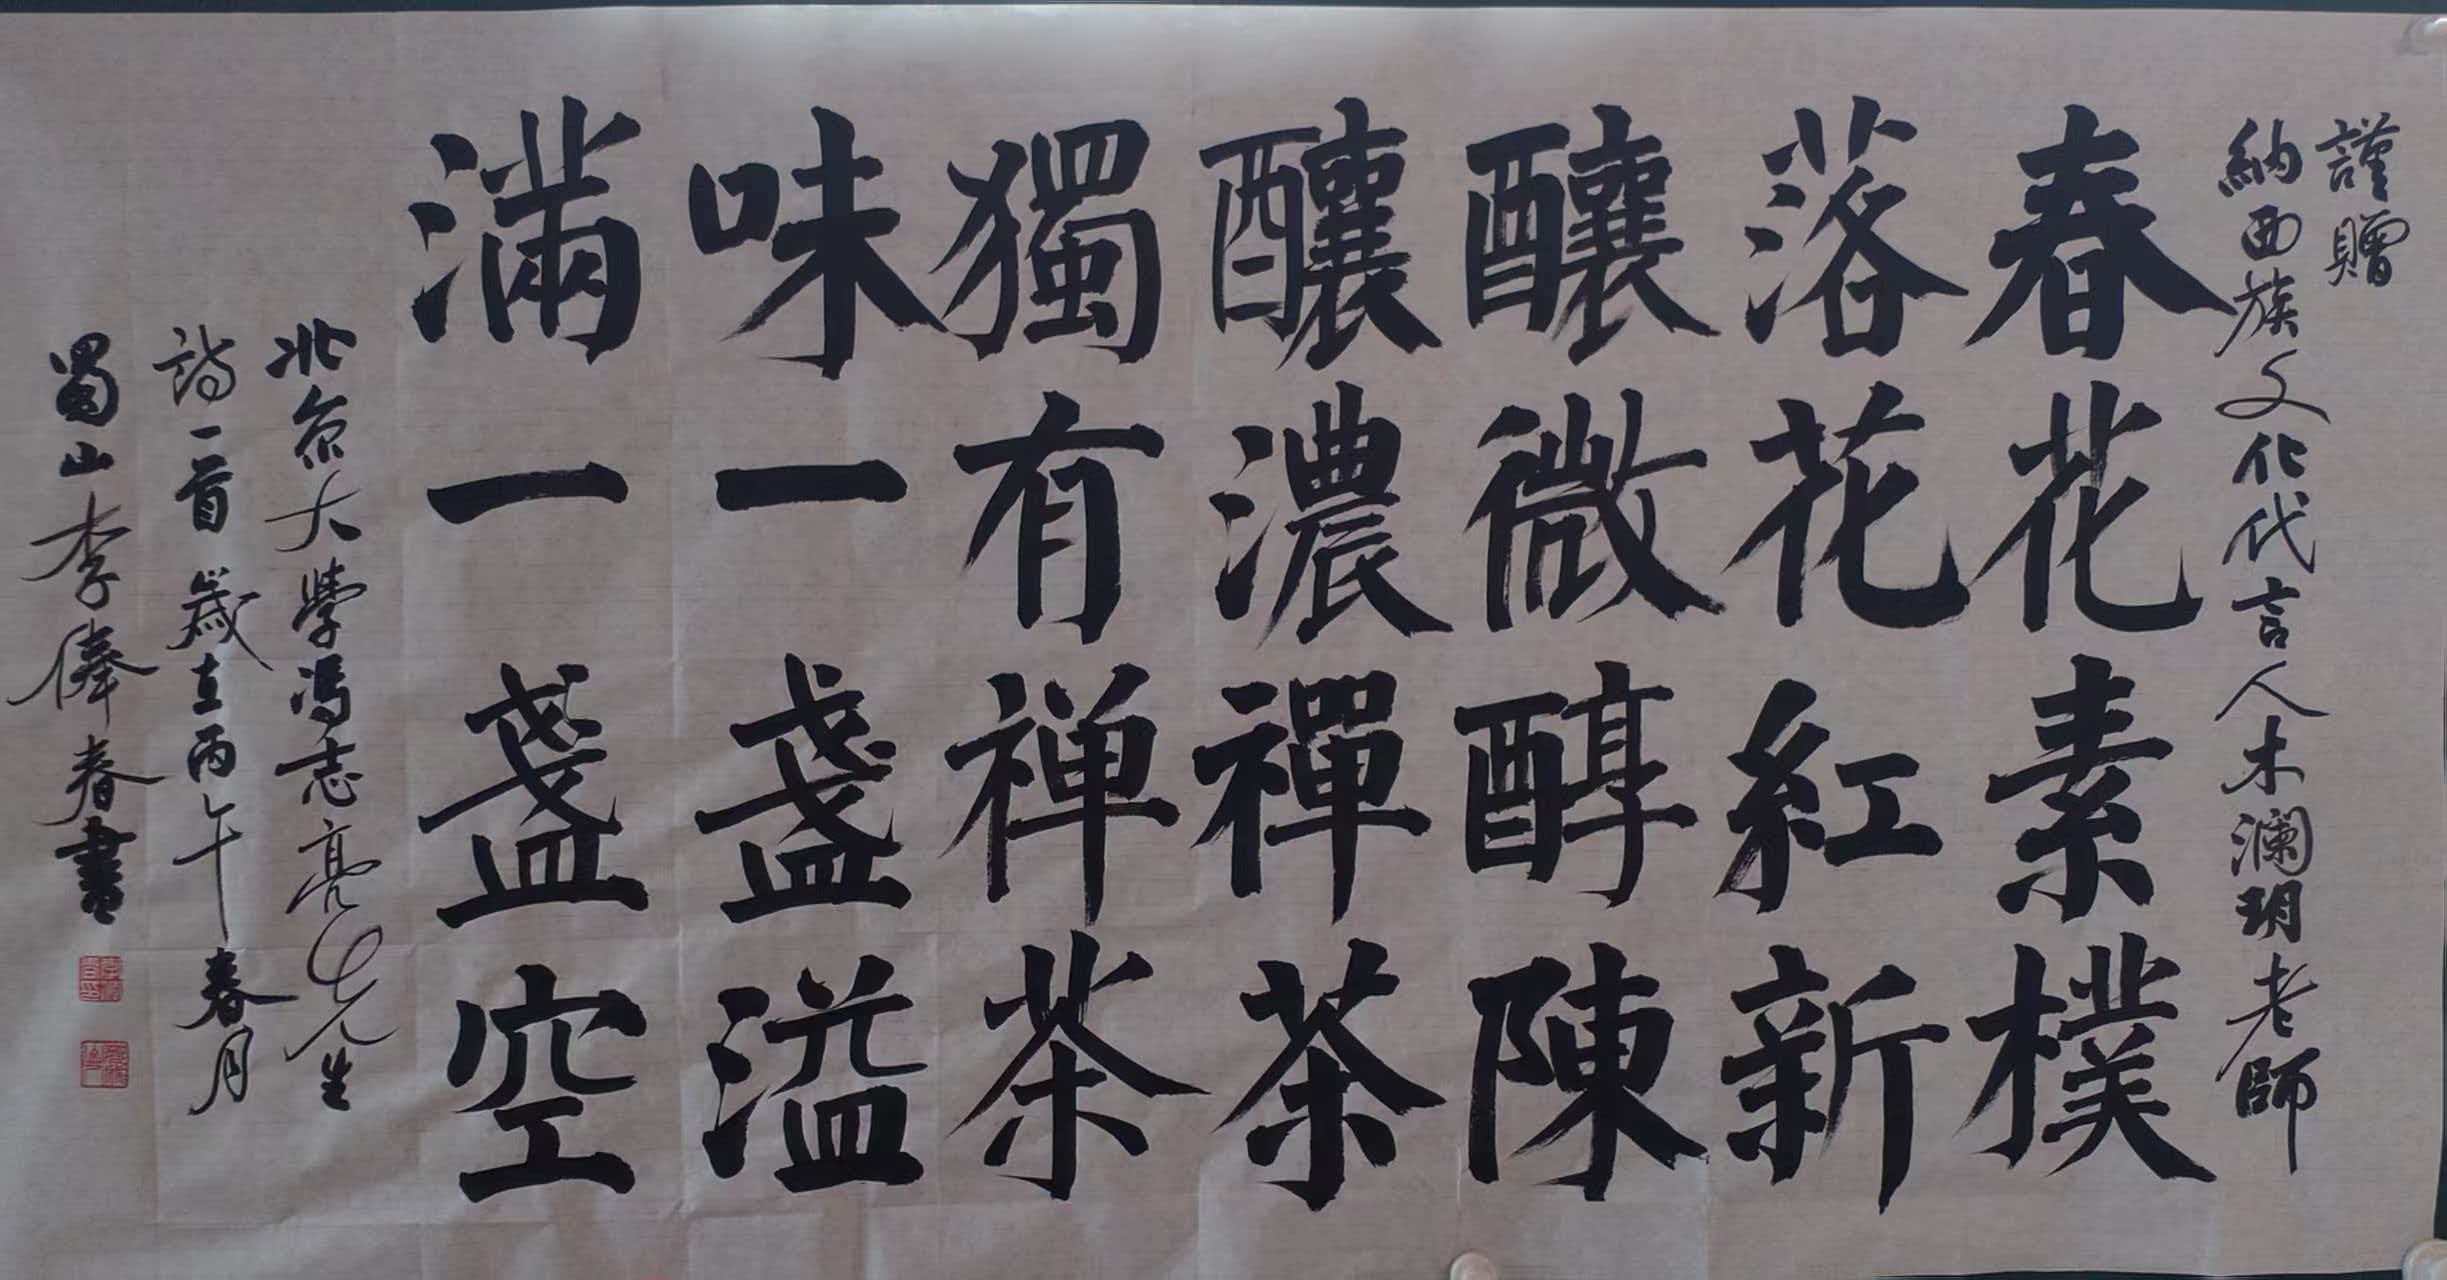 謹贈
納西族文化代言人木瀾玥老師
春花素樸
落花紅新
釀微醇陳
釀濃禪茶
獨有禅茶
味一盏溢
滿一盏空
北京大學馮志亮先生
詩一首歲在丙午春月
蜀山李俸春書